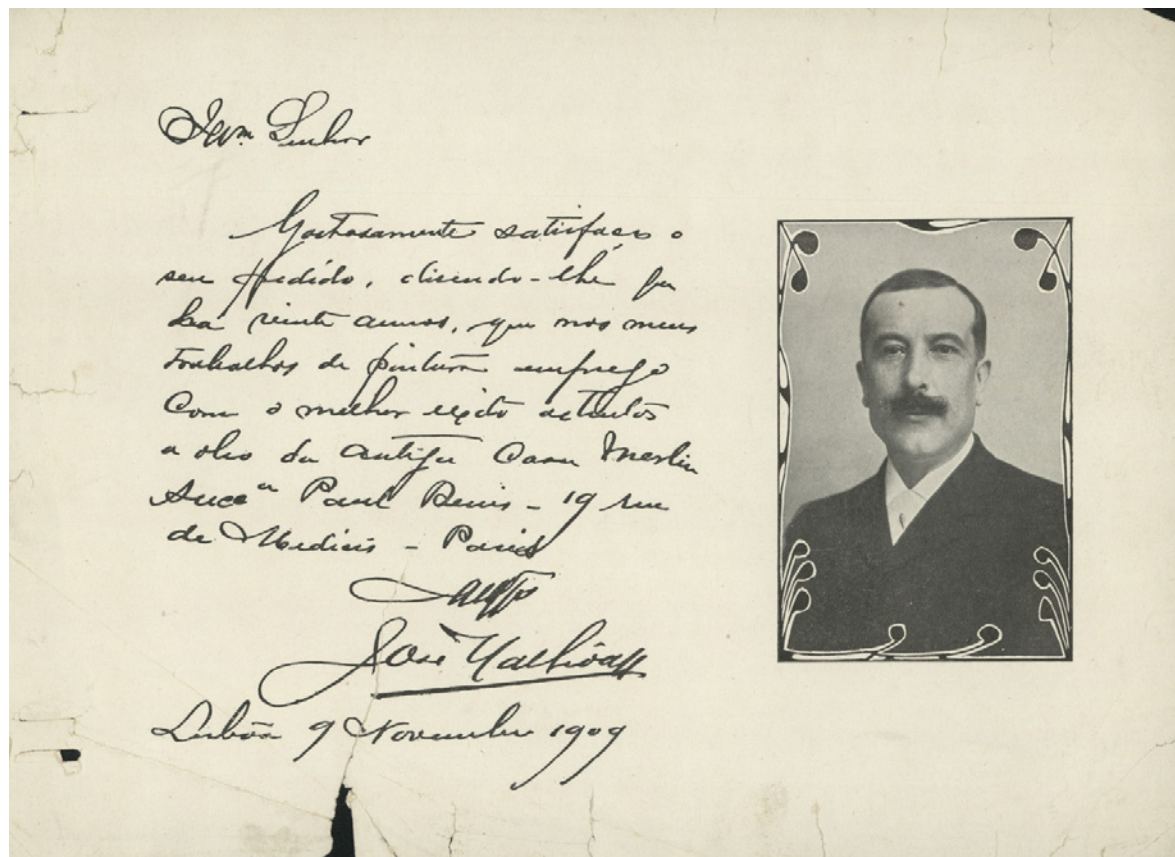 Senhor
Gostosamente satisfaço o
seu pedido, disendo-lhe
ha vinte annos, que nos meus
trabalhos de pintura emprego
Com o melhor exito as tintas
a oleo da antiga Casa Merlin
Succ Paul Denis - 19 rue
de Medicis - Paris
José Malhôa
Lisbôa 9 Novembro 1909